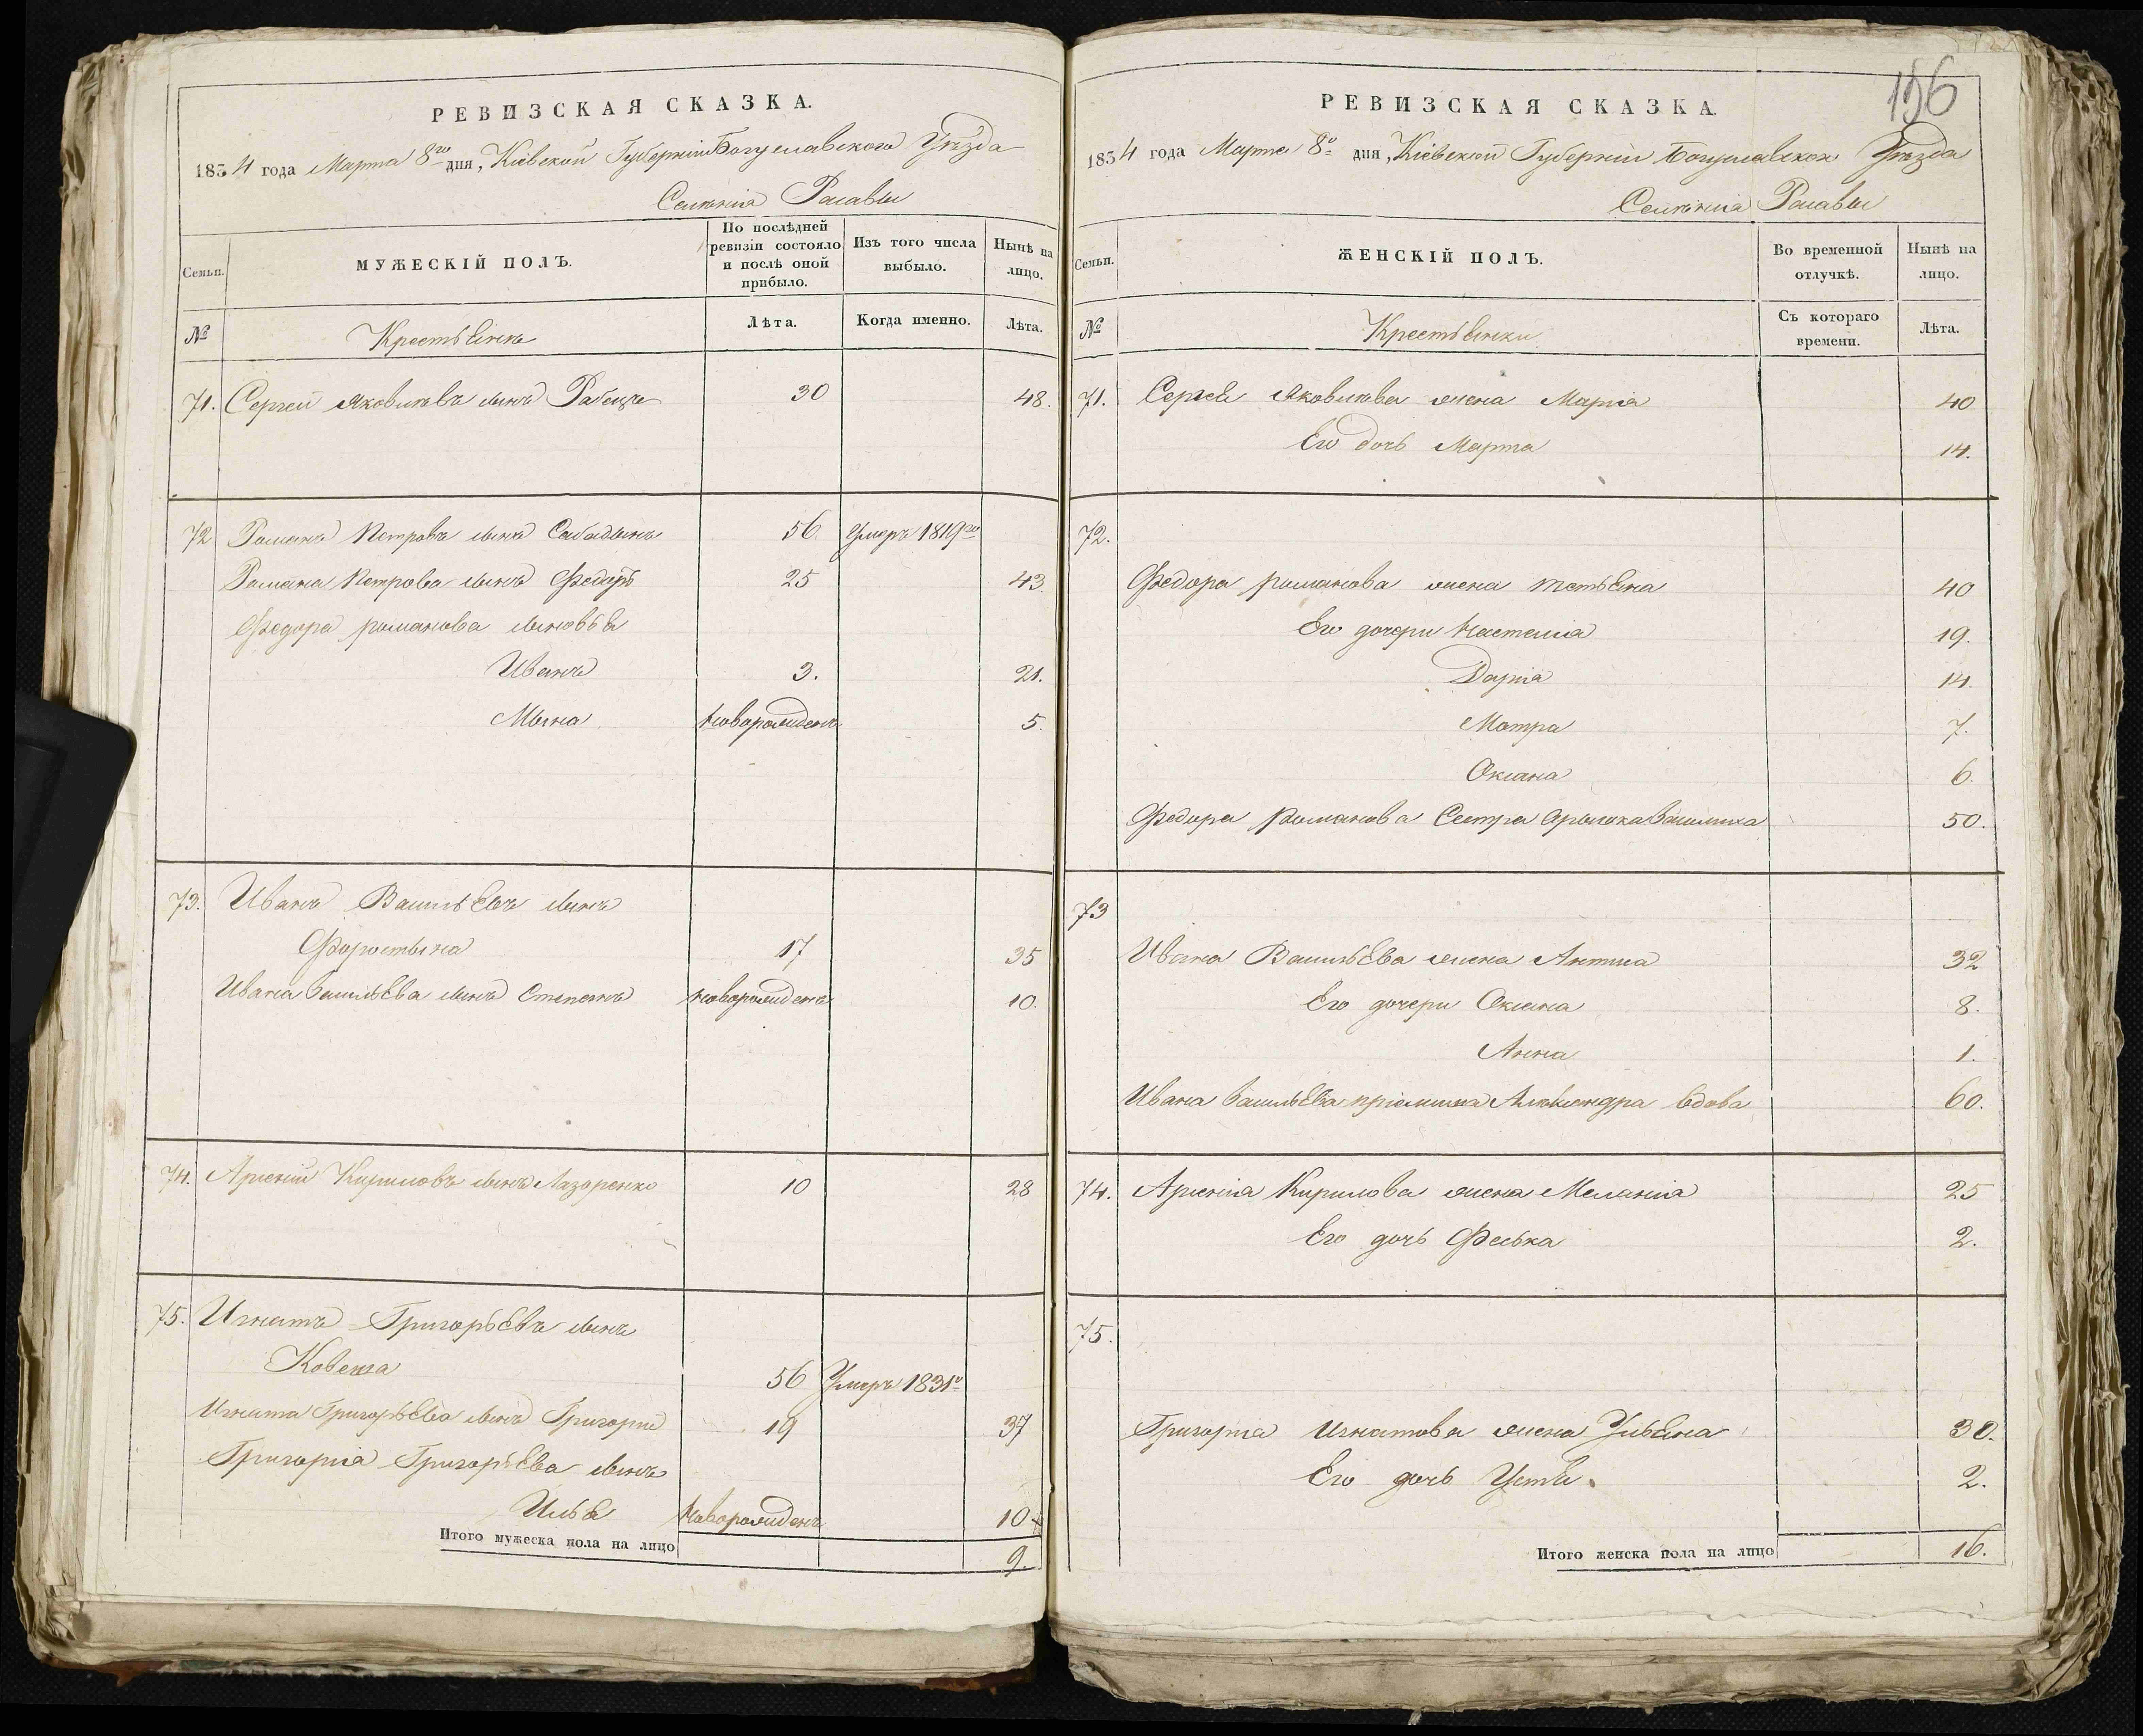 РЕВИЗСКАЯ СКАЗКА.
1834 года Марта 8го дня, Кіевской Губерніи Богуславского Уѣзда
Селенія Расавы
Семьи.
МУЖЕСКІЙ ПОЛЪ.
По послѣдней ревизіи состояло и послѣ оной прибыло.
Изъ того числа выбыло.
Нынѣ на лицо.
№
Крестьяне
Лѣта.
Когда именно.
Лѣта.
71. Сергей Яковлевъ сынъ 30 48.
72 Романъ Петровъ сынъ 56 Умеръ 1819го
Романа Петрова сынъ Федоръ 25 43.
Федора романова сыновья
Иванъ 3. 21.
Мина Новорожденъ 5.
73. Иванъ Васильевъ сынъ
17 35
Ивана Васильева сынъ Степанъ новорожденъ 10.
74. Арсений Кириловъ сынъ Лазоренко 10 28
75. Игнатъ Григорьевъ сынъ
56 Умеръ 1831о
Игната Григорьева сынъ Григорий 19 37
Григорія Григорьева сынъ
Илья Новорожденъ 10
Итого мужеска пола на лицо 9.
156
РЕВИЗСКАЯ СКАЗКА.
1834 года Марта 8о дня, Кіевской Губерніи Богуславскоя Уѣзда
Селенія Расавы
Семьи.
ЖЕНСКІЙ ПОЛЪ.
Во временной отлучкѣ.
Нынѣ на лицо.
№
Крестьянки
Съ котораго времени.
Лѣта.
71. Сергея Яковлева жена Марія 40
Его дочь Марта 14.
72.
Федора романова жена Тетьяна 40
Его дочери Настасія 19.
Дарія 14.
Мотра 7.
Оксана 6.
Федора Романова Сестра 50.
73
Ивана Васильева жена 32
Его дочери Оксана 8.
Анна 1.
Ивана Васильева Александра вдова 60.
74. Арсенія Кирилова жена Меланія 25
Его дочь Феська 2.
75.
Григорія Игнатова жена Ульяна 30.
Его дочь Устя 2.
Итого женска пола на лицо 16.